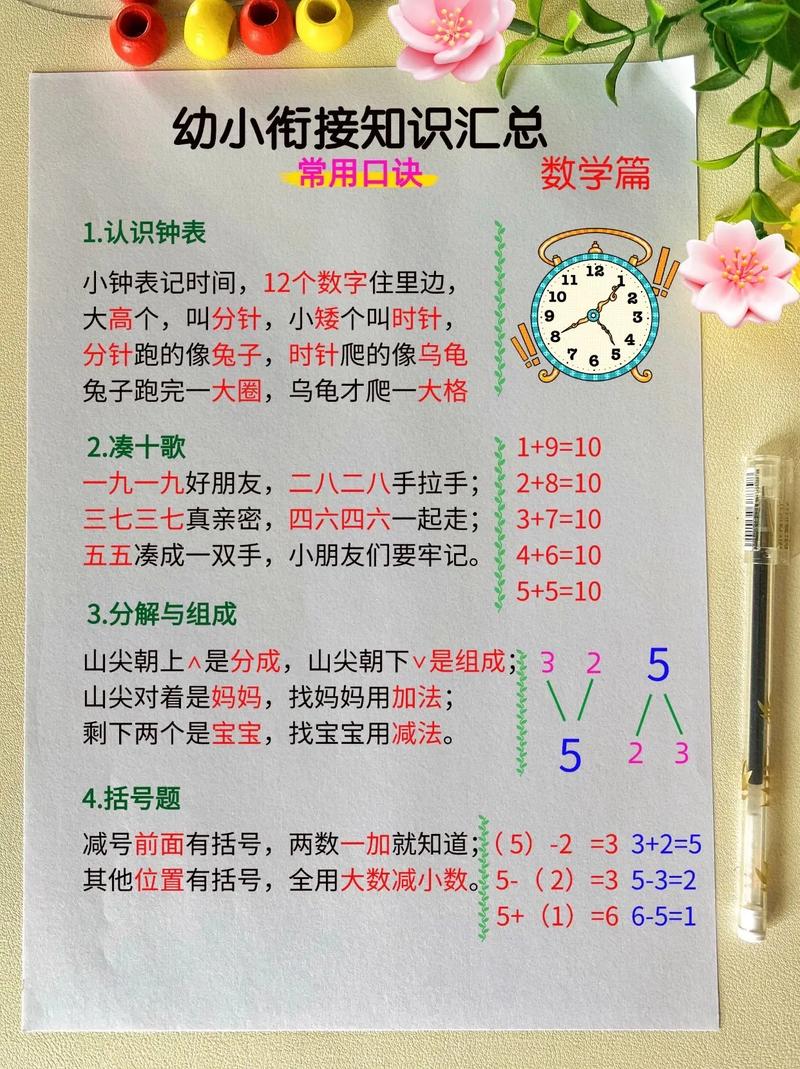 幼小衔接知识汇总
常用口诀 数学篇
1.认识钟表
小钟表记时间，12个数字住里边，
大高个，叫分针，小矮个叫时针，
分针跑的像兔子，时针爬的像乌龟
兔子跑完一大圈，乌龟才爬一大格
12 1 2 3 4 5 6 7 8 9 10 11
2.凑十歌
一九一九好朋友，二八二八手拉手；
三七三七真亲密，四六四六一起走；
五五凑成一双手，小朋友们要牢记。
1+9=10
2+8=10
3+7=10
4+6=10
5+5=10
3.分解与组成
山尖朝上∧是分成，山尖朝下∨是组成；
山尖对着是妈妈，找妈妈用加法；
剩下两个是宝宝，找宝宝用减法。
3 2 5
5 2 3
4.括号题
减号前面有括号，两数一加就知道；
其他位置有括号，全用大数减小数。
（5）-2 =3 3+2=5
5-（2）=3 5-3=2
5+（1）=6 6-5=1